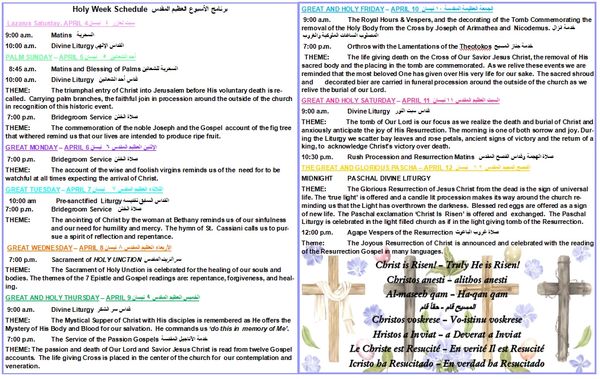 Holy Week Schedule برنامج الأسبوع العظيم المقدس
Lazarus Saturday, APRIL 4 سبت لعازر ٤ نيسان
9:00 a.m. Matins السحرية
10:00 a.m. Divine Liturgy القداس الإلهي
PALM SUNDAY – APRIL 5 أحد الشعانين ٥ نيسان
8:45 a.m. Matins and Blessing of Palms السحرية للشعانين
10:00 a.m. Divine Liturgy قداس أحد الشعانين
THEME: The triumphal entry of Christ into Jerusalem before His voluntary death is re-
called. Carrying palm branches, the faithful join in procession around the outside of the church
in recognition of this historic event.
7:00 p.m. Bridegroom Service صلاة الختن
THEME: The commemoration of the noble Joseph and the Gospel account of the fig tree
that withered remind us that our lives are intended to produce ripe fruit.
GREAT MONDAY – APRIL 6 الإثنين العظيم المقدس ٦ نيسان
7:00 p.m. Bridegroom Service صلاة الختن
THEME: The account of the wise and foolish virgins reminds us of the need for to be
watchful at all times expecting the arrival of Christ.
GREAT TUESDAY – APRIL 7 الثلاثاء العظيم المقدس ٧ نيسان
10:00 am Pre-sanctified Liturgy القداس السابق تقديسه
7:00 p.m. Bridegroom Service صلاة الختن
THEME: The anointing of Christ by the woman at Bethany reminds us of our sinfulness
and our need for humility and mercy. The hymn of St. Cassiani calls us to pur-
sue a spirit of reflection and repentance.
GREAT WEDNESDAY – APRIL 8 الأربعاء العظيم المقدس ٨ نيسان
7:00 p.m. Sacrament of HOLY UNCTION سر الزيت المقدس
THEME: The Sacrament of Holy Unction is celebrated for the healing of our souls and
bodies. The themes of the 7 Epistle and Gospel readings are: repentance, forgiveness, and heal-
ing.
GREAT AND HOLY THURSDAY – APRIL 9 الخميس العظيم المقدس ٩ نيسان
9:00 a.m. Divine Liturgy قداس سر الشكر
THEME: The Mystical Supper of Christ with His disciples is remembered as He offers the
Mystery of His Body and Blood for our salvation. He commands us 'do this in memory of Me'.
7:00 p.m. The Service of the Passion Gospels خدمة الأناجيل المقدسة
THEME: The passion and death of Our Lord and Savior Jesus Christ is read from twelve Gospel
accounts. The life giving Cross is placed in the center of the church for our contemplation and
veneration.
GREAT AND HOLY FRIDAY – APRIL 10 الجمعة العظيمة المقدسة ١٠ نيسان
9:00 a.m. The Royal Hours & Vespers, and the decorating of the Tomb Commemorating the
removal of the Holy Body from the Cross by Joseph of Arimathea and Nicodemus. خدمة إنزال
المصلوب الساعات الملوكية والغروب
7:00 p.m. Orthros with the Lamentations of the Theotokos خدمة جناز المسيح
THEME: The life giving death on the Cross of Our Savior Jesus Christ, the removal of His
sacred body and the placing in the tomb are commemorated. As we relive these events we are
reminded that the most beloved One has given over His very life for our sake. The sacred shroud
and decorated bier are carried in funeral procession around the outside of the church as we
relive the burial of our Lord.
GREAT AND HOLY SATURDAY – APRIL 11 السبت العظيم المقدس ١١ نيسان
9:00 a.m. Divine Liturgy قداس سبت النور
THEME: The tomb of Our Lord is our focus as we realize the death and burial of Christ and
anxiously anticipate the joy of His Resurrection. The morning is one of both sorrow and joy. Dur-
ing the Liturgy we scatter bay leaves and rose petals, ancient signs of victory and the return of a
king, to acknowledge Christ's victory over death.
10:30 p.m. Rush Procession and Resurrection Matins صلاة الهجمة وقداس الفصح المقدس
THE GREAT AND GLORIOUS PASCHA – APRIL 12 الفصح المجيد المقدس ١٢ نيسان
MIDNIGHT PASCHAL DIVINE LITURGY
THEME: The Glorious Resurrection of Jesus Christ from the dead is the sign of universal
life. The 'true light' is offered and a candle lit procession makes its way around the church re-
minding us that the Light has overthrown the darkness. Blessed red eggs are offered as a sign
of new life. The Paschal exclamation 'Christ Is Risen' is offered and exchanged. The Paschal
Liturgy is celebrated in the light filled church as if in the light giving tomb of the Resurrection.
12:00 p.m. Agape Vespers of the Resurrection صلاة غروب الباعوث
Theme: The Joyous Resurrection of Christ is announced and celebrated with the reading
of the Resurrection Gospel in many languages.
Christ is Risen! – Truly He is Risen!
Christos anesti – alithos anesti
Al-maseeh qam – Ha-qan qam
المسيح قام – حقاً قام
Christos voskrese – Vo-istinu voskrese
Hristos a Inviat – a Deverat a Inviat
Le Christe est Resucité – En verité Il est Resucité
Icristo ha Resucitado – En verdad ha Resucitado